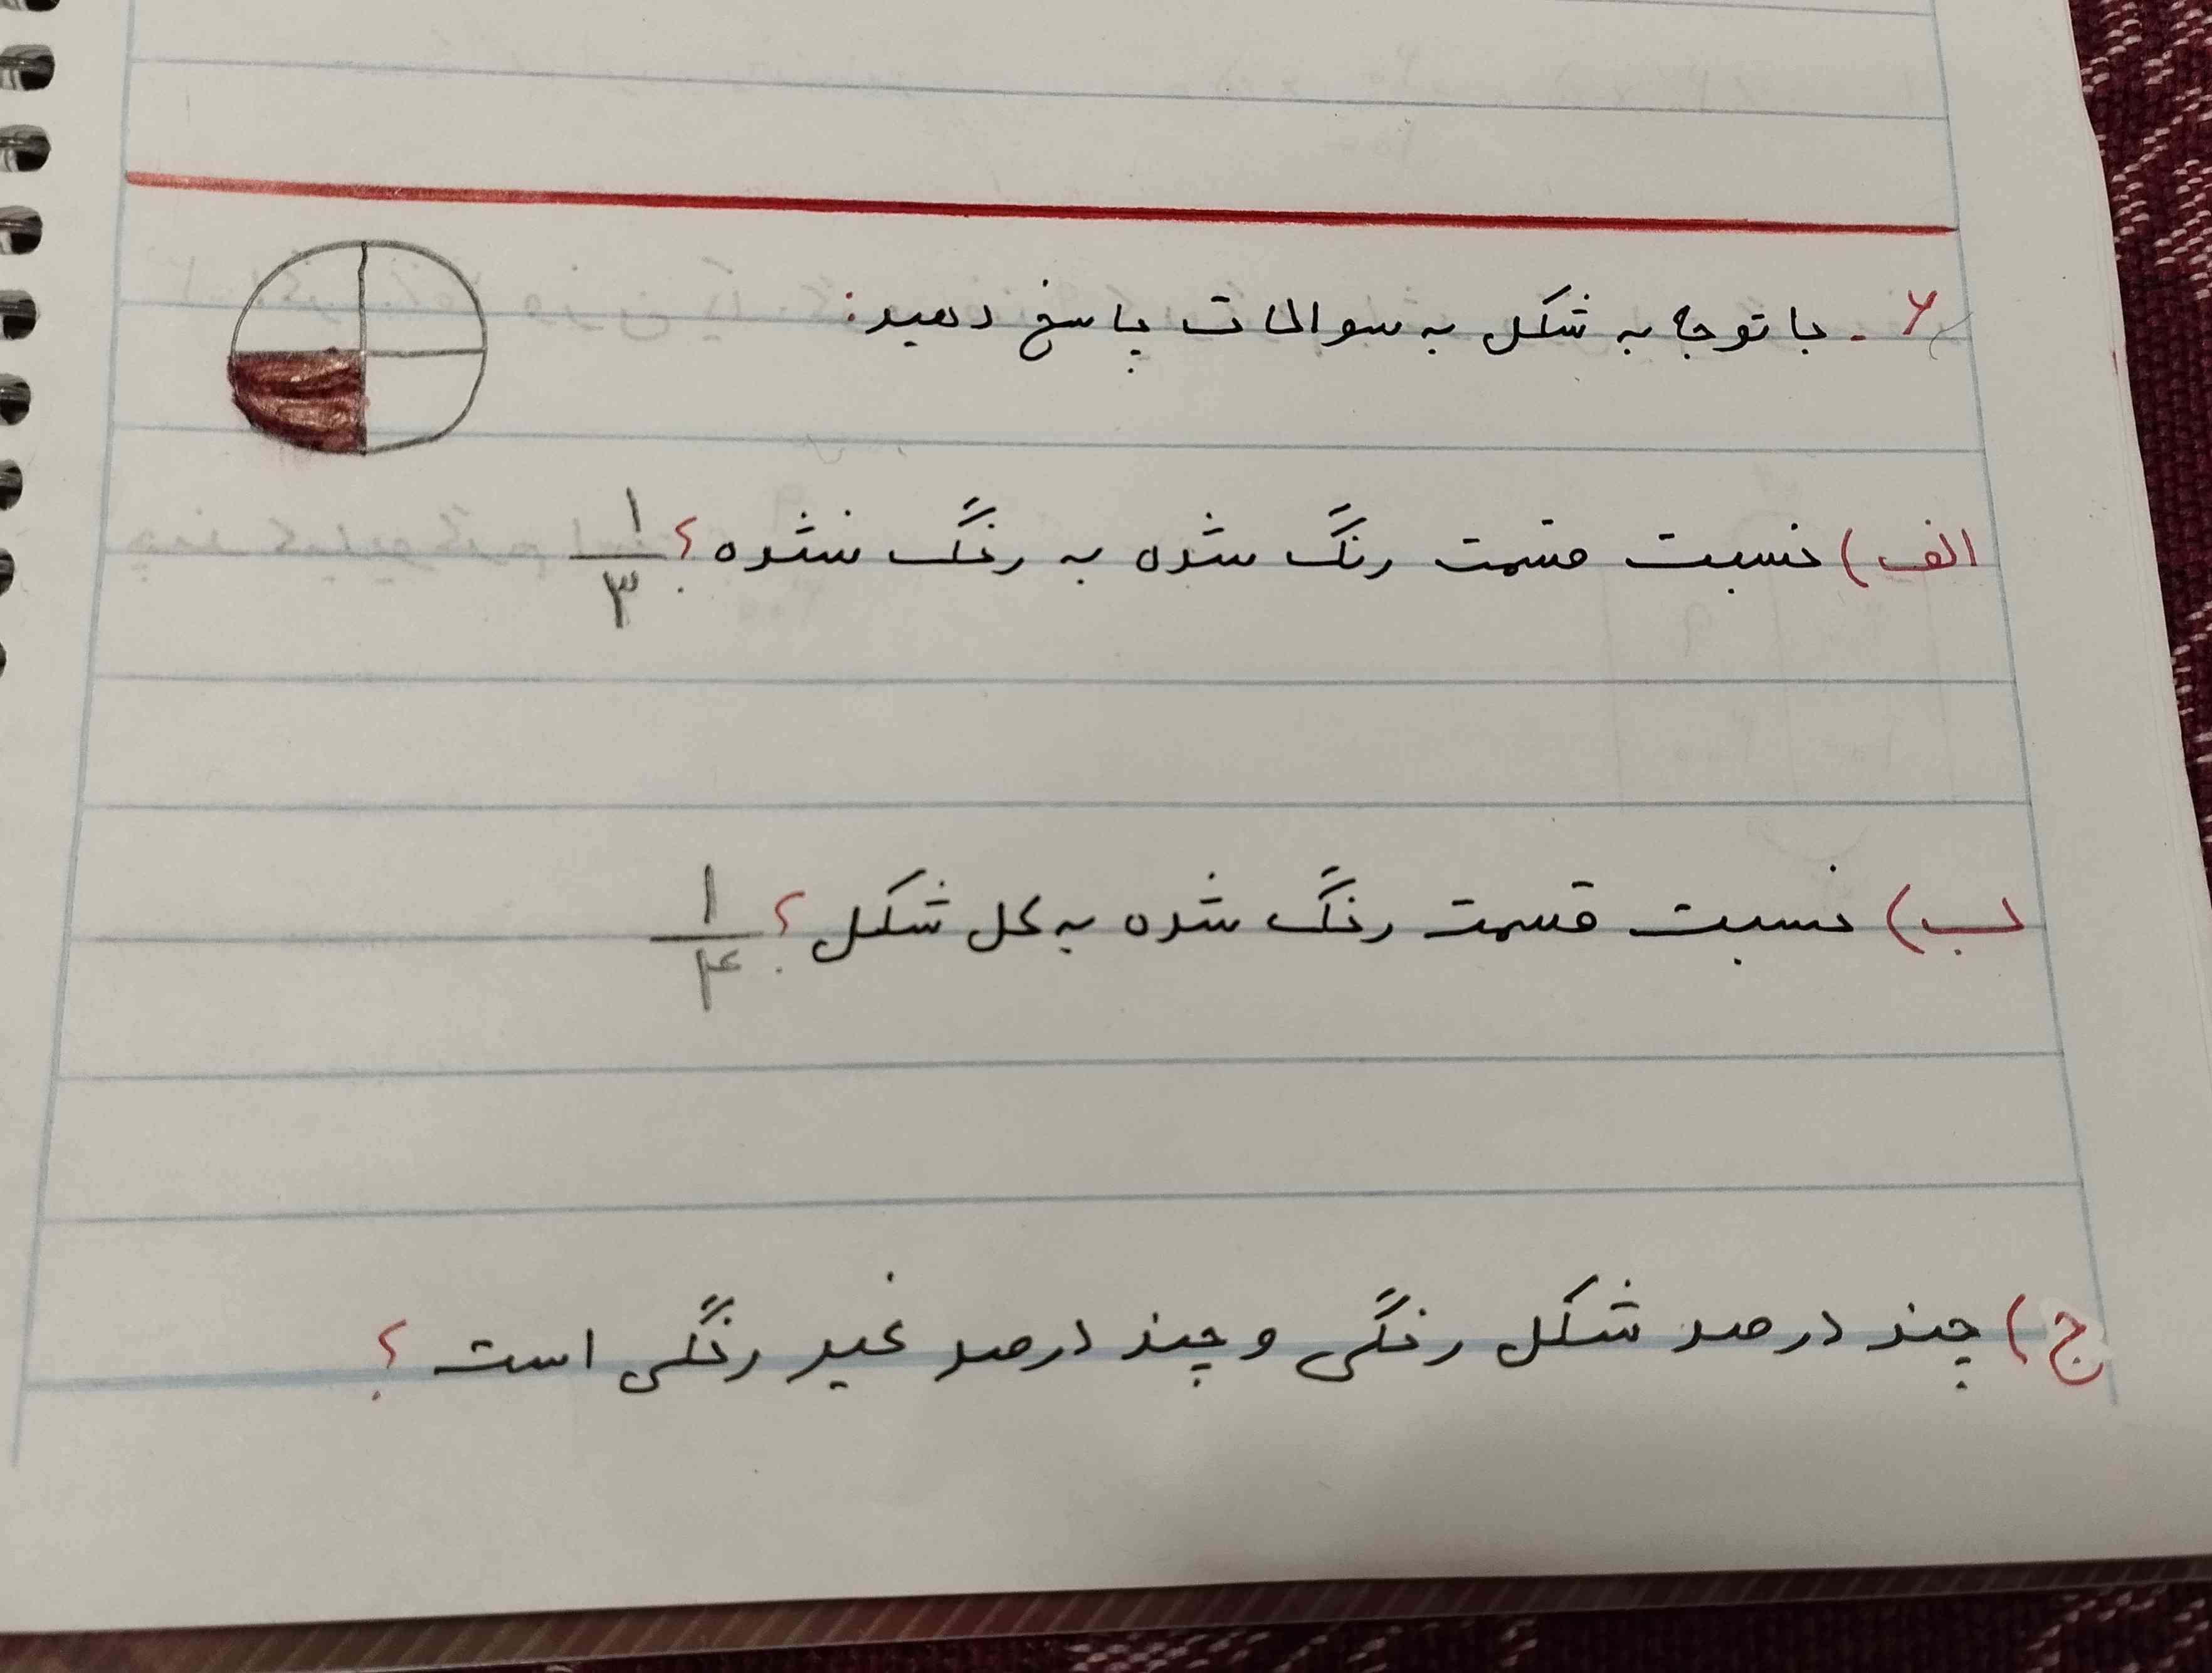 ۶ - با توجه به شکل به سوالات پاسخ دهید:
الف) نسبت قسمت رنگ شده به رنگ نشده؟ ۱/۳
ب) نسبت قسمت رنگ شده به کل شکل؟ ۱/۴
ج) چند درصد شکل رنگی و چند درصد غیر رنگی است؟